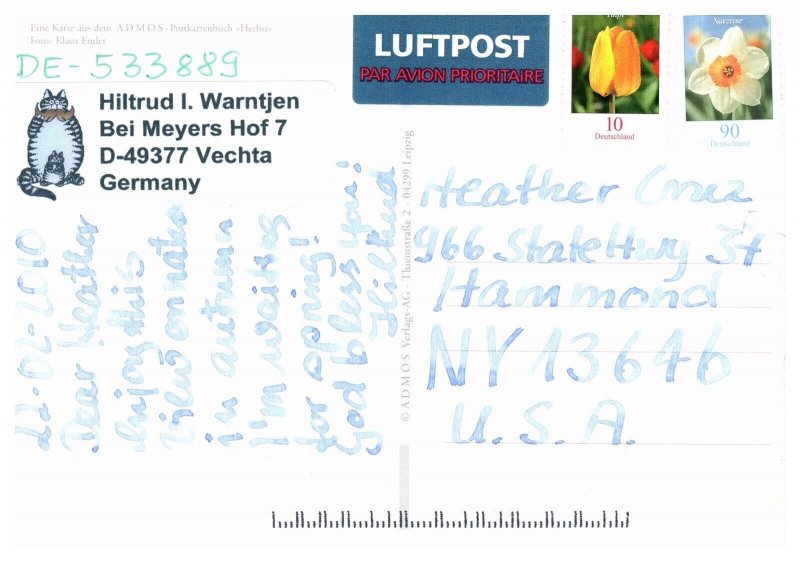 Eine Karte aus dem ADMOS-Postkartenbuch »Herbst«
Foto: Klaus Ender
DE-533889
Hiltrud I. Warntjen
Bei Meyers Hof 7
D-49377 Vechta
Germany
LUFTPOST
PAR AVION PRIORITAIRE
Tulpe
10
Deutschland
Narzisse
90
Deutschland
22-02-2010
Dear Heather
enjoy this
view on nature
in autumn
I'm waiting
for spring!
God bless you!
Hiltrud
© ADMOS Verlags-AG · Thiemstraße 2 · 04299 Leipzig
Heather Cruz
966 State Hwy 37
Hammond
NY 13646
U.S.A.